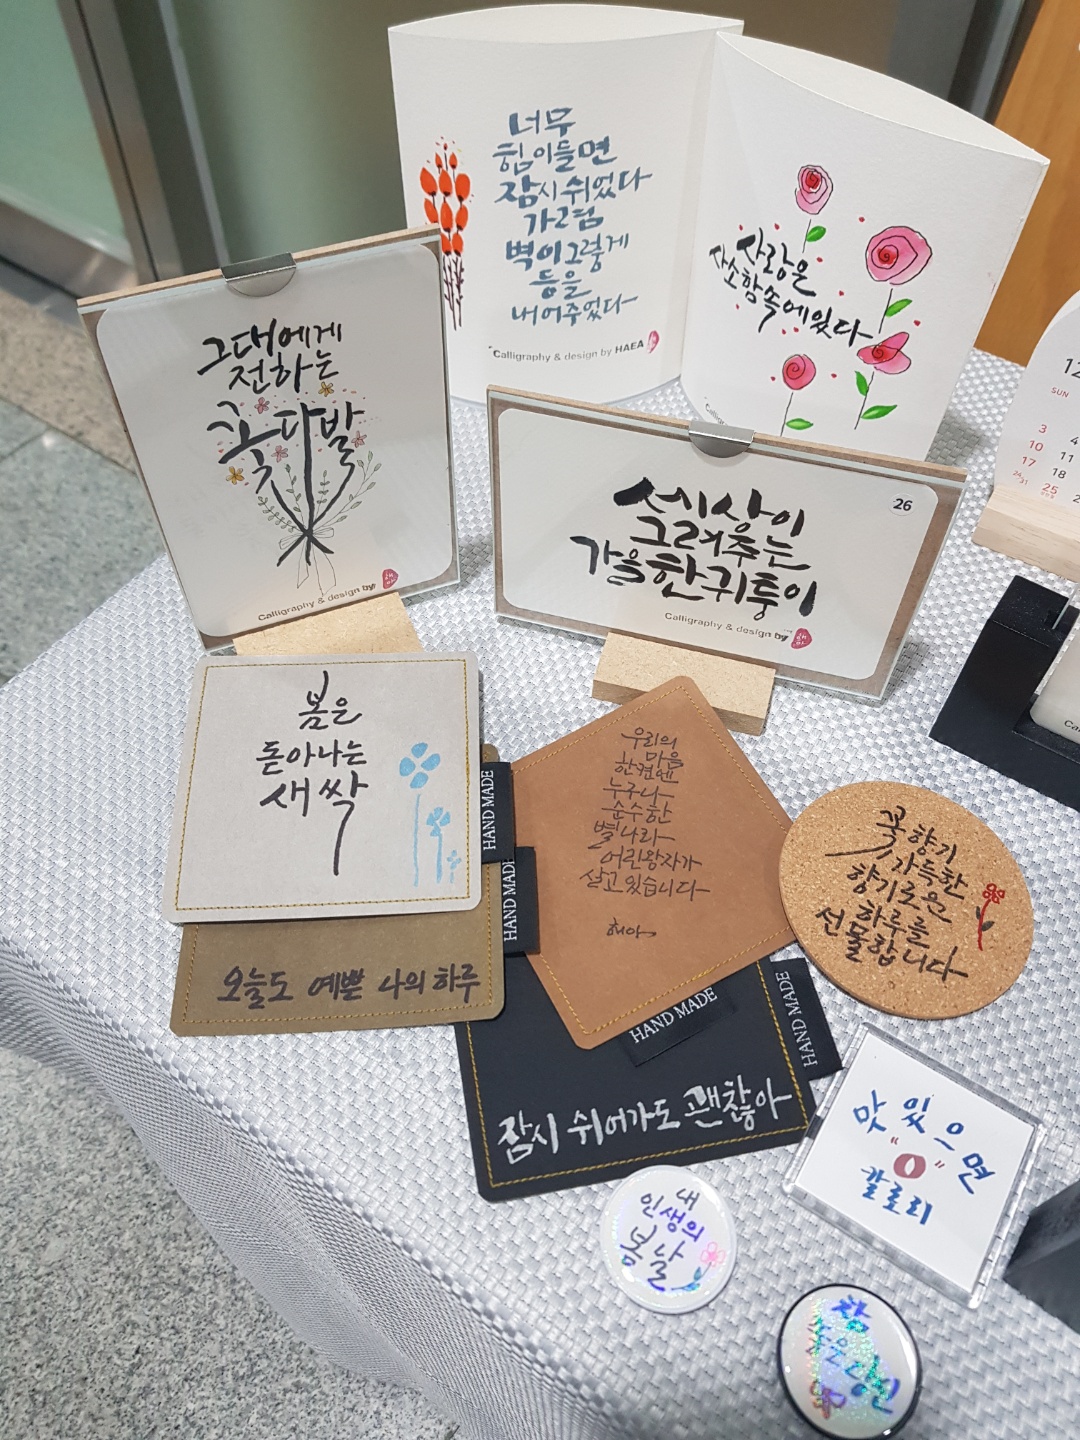 너무
힘이들면
잠시 쉬었다
가렴
벽이그렇게
등을
내어주었다
Calligraphy & design by HAEA
사랑은
사소함속에있다
그대에게
전하는
꽃다발
Calligraphy & design by
해아
세상이
그려주는
가을한귀퉁이
26
Calligraphy & design by
해아
12
SUN
3
4
10
11
17
18
24
31
25
봄은
돋아나는
새싹
HAND MADE
오늘도 예쁜 나의하루
HAND MADE
우리의
마음
한켠엔
누구나
순수한
별나라
어린왕자가
살고있습니다
해아
HAND MADE
꽃향기
가득한
향기로운
하루를
선물합니다
잠시 쉬어가도 괜찮아
HAND MADE
맛있으면
"0"
칼로리
내
인생의
봄날